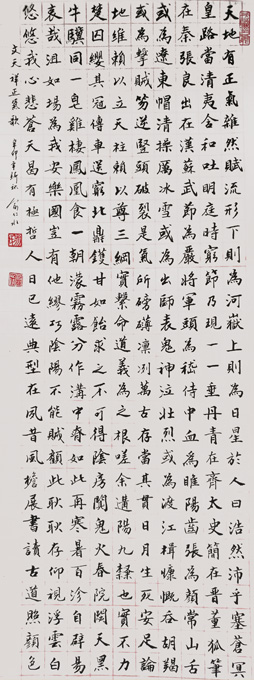 天地有正氣雜然賦流形下則為河嶽上則為日星於人曰浩然沛乎塞蒼冥
皇路當清夷含和吐明庭時窮節乃現一一垂丹青在齊太史簡在晉董狐筆
在秦張良椎在漢蘇武節為嚴將軍頭為嵇侍中血為睢陽齒為顏常山舌
或為遼東帽清操厲冰雪或為出師表鬼神泣壯烈或為渡江楫慷慨吞胡羯
或為擊賊笏逆豎頭破裂是氣所磅礴凜冽萬古存當其貫日月生死安足論
地維賴以立天柱賴以尊三綱實繫命道義為之根嗟余遘陽九隸也實不力
楚囚纓其冠傳車送窮北鼎鑊甘如飴求之不可得陰房闃鬼火春院閟天黑
牛驥同一皂雞棲鳳凰食一朝蒙霧露分作溝中瘠如此再寒暑百沴自辟易
哀哉沮洳場為我安樂國豈有他繆巧陰陽不能賊顧此耿耿存仰視浮雲白
悠悠我心悲蒼天曷有極哲人日已遠典型在夙昔風檐展書讀古道照顏色
文天祥正氣歌 辛卯